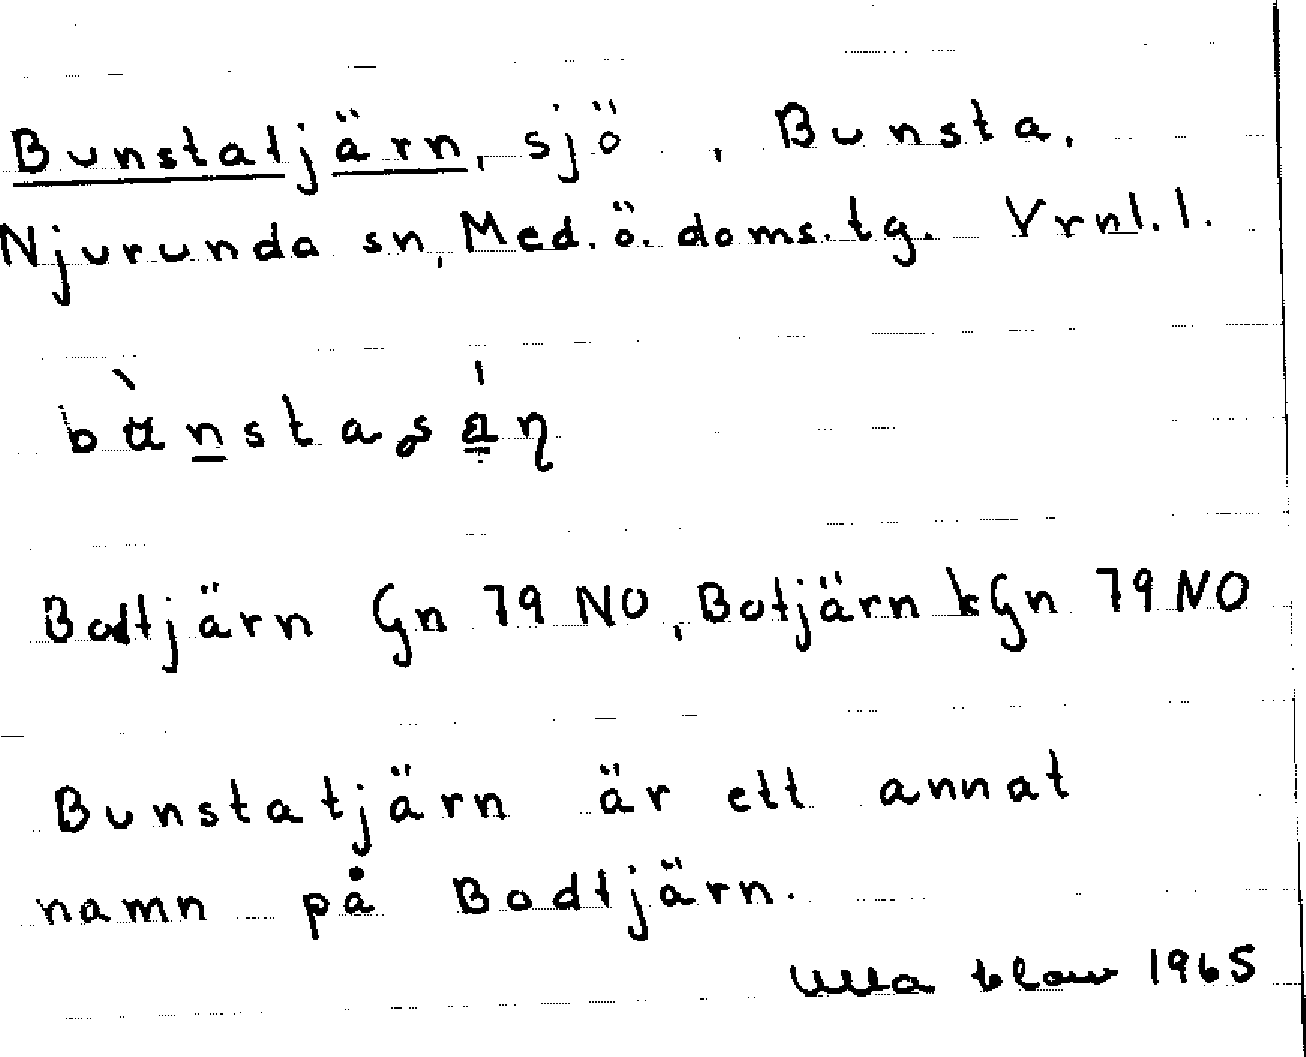 Bunstatjärn, sjö, Bunsta.
Njurunda sn, Med. ö. doms. tg. Vrnl. l.
Bodtjärn Gn 79 NO, Botjärn kGn 79 NO
Bunstatjärn är ett annat
namn på Bodtjärn.
Ulla 1965